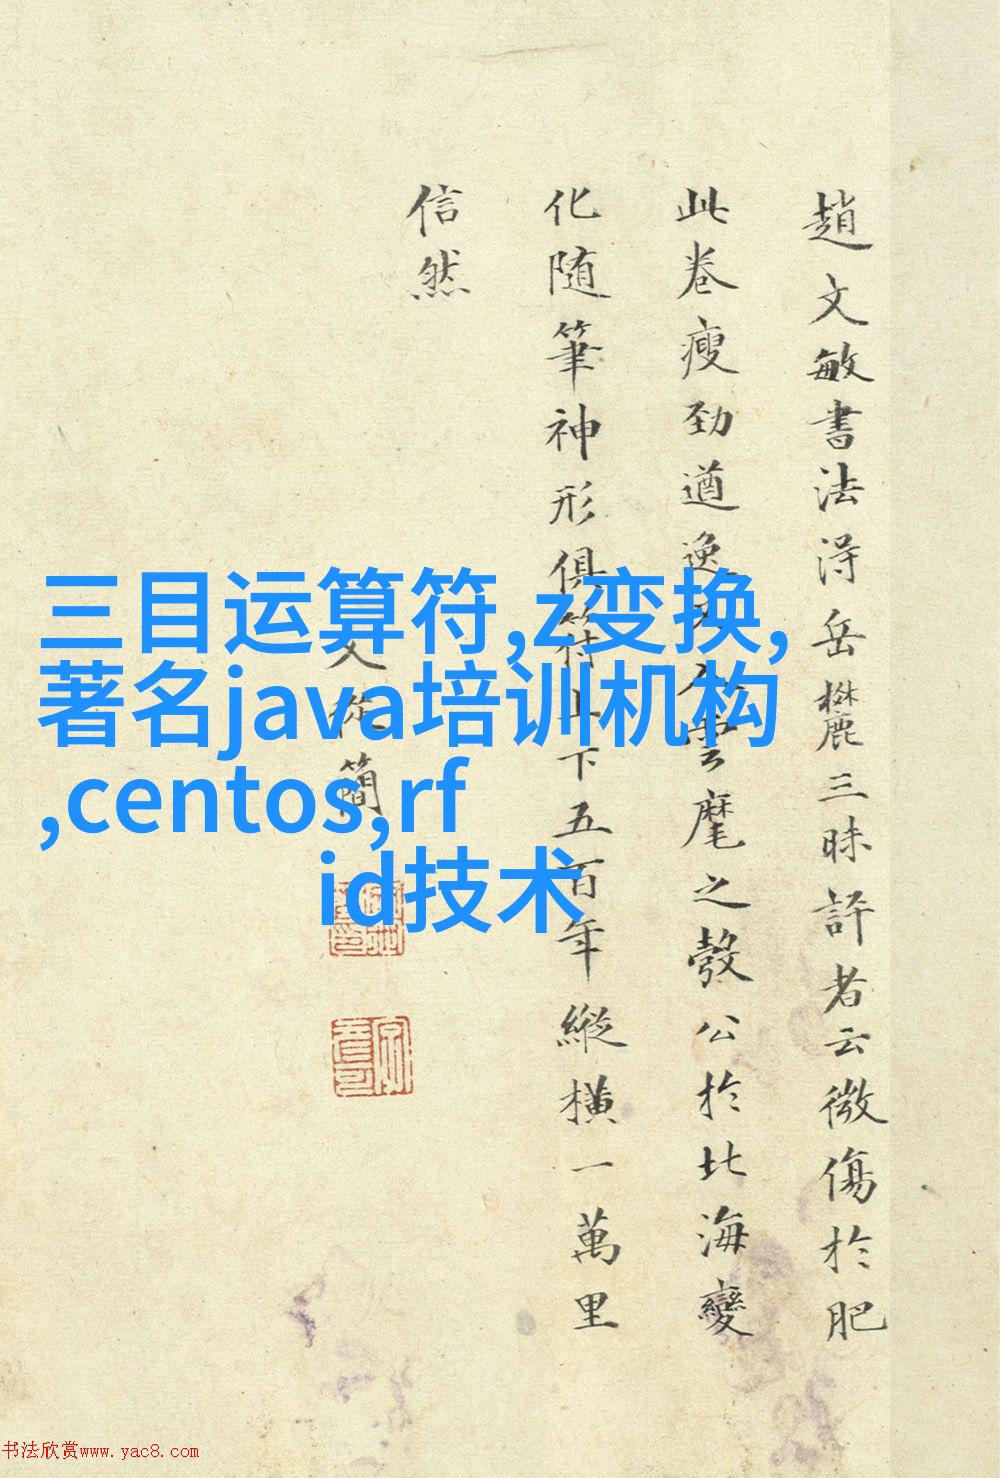 趙文敏書法淂岳麓三昧評者云微傷於肥
此卷瘦劲遒逸入雲麾之彀公於北海變
化随筆神形俱符上下五百年縱橫一萬里
信然
文從簡
三目运算符,z变换,
著名java培训机构
,centos,rf
id技术
书法欣赏www.yac8.com